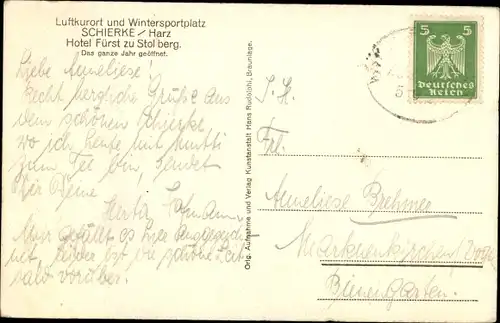 Luftkurort und Wintersportplatz
SCHIERKE / Harz
Hotel Fürst zu Stolberg.
Das ganze Jahr geöffnet.
Liebe Anneliese!
Recht herzliche Grüße aus
dem schönen Schierke
wo ich heute mit Mutti
zum Tee bin, sendet
Dir Deine
Herta
Mir gefällt es hier ausgezeich
net, leider ist die schöne Zeit
bald vorüber.
Orig. Aufnahme und Verlag Kunstanstalt Hans Rudolphi, Braunlage.
5 5
Deutsches
Reich
Frl.
Anneliese Brehmer
Markneukirchen i. Vogtl.
Bienengarten.